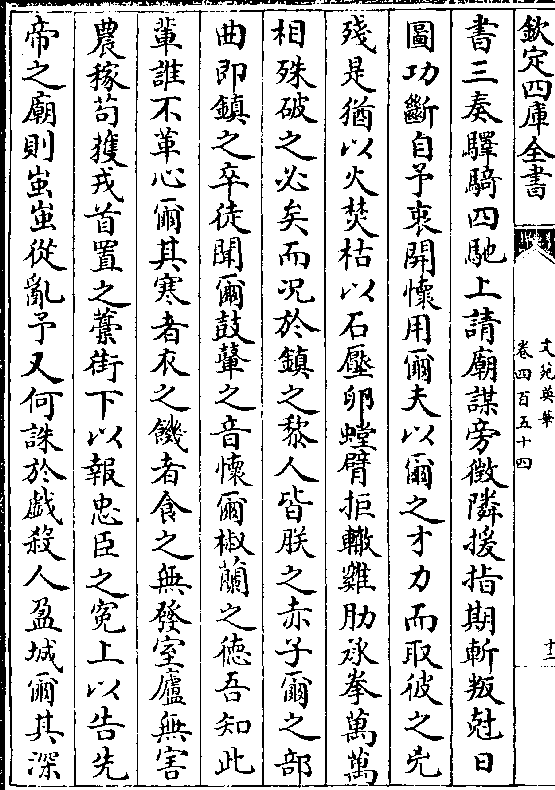 欽定四庫全書
文苑英華
卷四百五十四
十三
書三奏驛騎四馳上請廟謀旁徵隣援指期斬叛尅日
圖功斷自予衷開懷用爾夫以爾之才力而取彼之兇
殘是猶以火焚枯以石壓卵螳臂拒轍雞肋承拳萬萬
相殊破之必矣而况於鎮之黎人皆朕之赤子爾之部
曲即鎮之卒徒聞爾鼓鼙之音懷爾椒蘭之德吾知此
輩誰不革心爾其寒者衣之饑者食之無發室廬無害
農稼苟獲戎首置之藁街下以報忠臣之寃上以告先
帝之廟則蚩蚩從亂予又何誅於戲殺人盈城爾其深